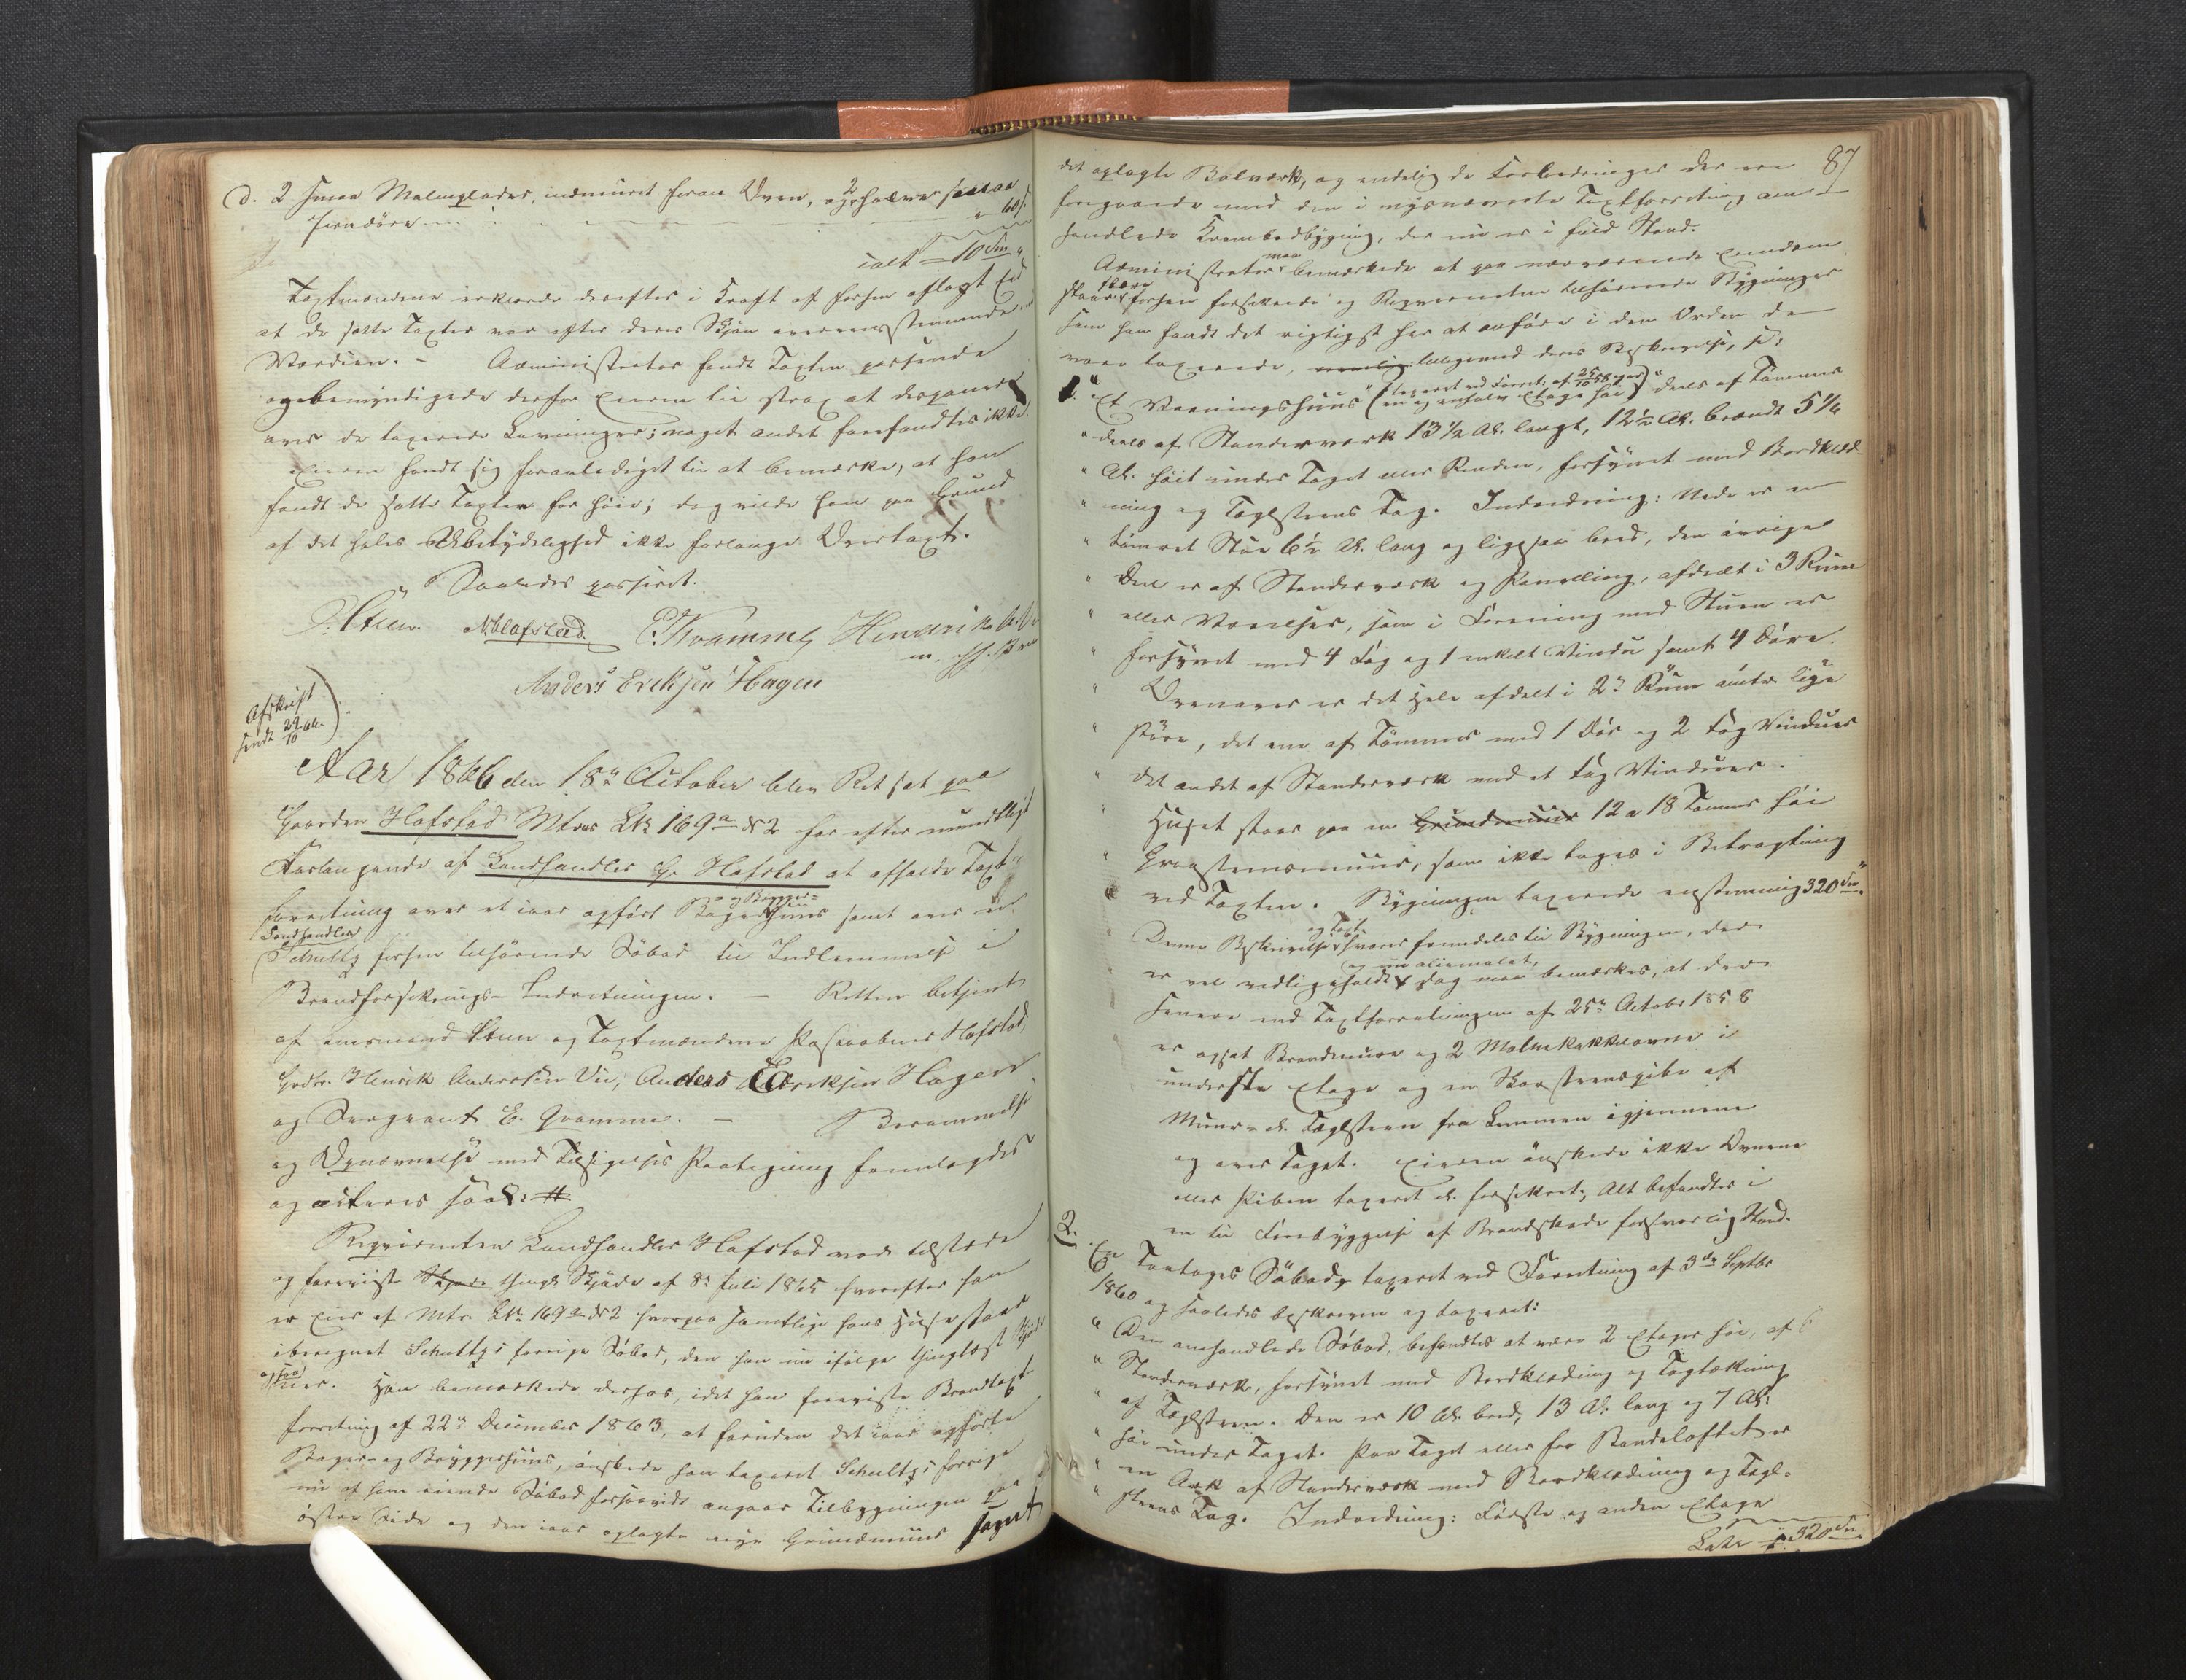 d. 2 smaa Malmplader, indmuret foran Ovn, og 2 halve smaa
Jerndøre - - - - " 60 s.
ialt = 10 Sm "
Taxtmændene erklærede derefter i Kraft af forhen aflagt Eed
at de satte Taxter var efter deres Skjøn overensstemmende
Værdien. - Administrator fandt Taxten passende
og bemyndigede derfor Eieren til strax at disponere
over de taxerede Levninger; noget andet forefandtes ikke.
Eieren fandt sig foranlediget til at bemærke, at han
fandt de satte Taxter for høie; dog vilde han paa Grund
af det heles Ubetydelighed ikke forlange Overtaxt.
Saaledes passeret.
N. Hafstad E. Kvamme Henrik
Anders Eriksen Hagen
Afskrift
sendt 29/10 66.
Aar 1866 den 18de October blev Ret sat paa
Gaarden Hafstad Mtr. L.No. 169a No 2 for efter mundtligt
Forlangende af Landhandler Hr. Hafstad at afholde Taxt-
forretning over et iaar opført Bager og Brygger-huus samt over en
Landhandler
Schultz forhen tilhørende Søbod til Indlemmelse i
Brandforsikrings-Indretningen. - Retten betjent
af Lensmand og Taxtmændene Postaabner Hafstad,
Gbr. Henrik Anderssen Vie, Anders Eriksen Hagen
og Sergeant E. Qvamme. - Berammelse
og Opnævnelse med Tilsigelses Paategning fremlagdes
og acteres saal: #
Reqvirenten Landhandler Hafstad var tilstede
og foreviste thingl. Skjøde af 8de Juli 1865 hvorefter han
er Eier af Mtr. L.No. 169a No 2 hvorpaa samtlige hans Huse staar
iberegnet Schultz's forrige Søbod, den han nu ifølge thinglæst Skjøde
ogsaa eier. Han bemærkede derhos, idet han foreviste Brandtaxt
forretning af 22de December 1863, at foruden det iaar opførte
Bager- og Bryggerhuus, ønskede han taxeret Schultz's forrige
nu af ham eiende Søbod forsaavidt angaar Tilbygningen paa
østre Side og den iaar oplagte nye Grundmuur samt
87
det oplagte Bolværk, og endelig de Forbedringer der ere
foregaaede med den i nysnævnte Taxtforretning om-
handlede Krambodbygning, der nu er i fuld Stand.
Administrator bemærkede at paa nærværende Eiendom
staar flere forhen forsikrede og Reqvirenten tilhørende Bygninger
som han fandt det rigtigst her at anføre i den Orden de
vare taxerede, tilligemed deres Beskrivelse, s:
1. " Et Vaaningshuus (taxeret ved Forret: af 25/10 58 (en og en halv Etage høi) deels af Tømmer
" deels af Standerværk 13 1/2 Al. langt, 12 1/2 Al. bredt 5 1/4
" Al. høit under Taget eller Renden, forsynet med Bordklæd-
" ning og Taglsteens Tag. Indredning: Nede er en
" tømret Stue 6 1/2 Al. lang og ligesaa bred, den øvrige
" Deel er af Standerværk og Panelling, afdeelt i 3 Rum
" eller Værelser, som i Forening med Stuen er
" forsynet med 4 Fag og 1 enkelt Vindu samt 4 Døre.
" Ovenover er det Hele afdelt i 2de Rum omtr. lige
" store, det ene af Tømmer med 1 Dør og 2 Fag Vinduer
" det andet af Standerværk med et Fag Vinduer.
" Huset staar paa en Grundmuur 12 a 18 Tommer høi
" Graasteensmuur, som ikke tages i Betragtning
" ved Taxten. Bygningen taxerede eenstemmig 320 Sm."
Denne Beskrivelse og Taxt svarer fremdeles til Bygningen, der
er vel vedligeholdt og nu oliemalet, dog maa bemærkes, at der
senere end Taxtforretningen af 25de October 1858
er opsat Brandmure og 2 Malmkakkelovne i
underste Etage og en Skorsteenspibe af
Muur- el. Taglsteen fra Lemmen igjennem
og over Taget. Eieren ønskede ikke Ovnene
eller Piben taxeret el. forsikret; Alt befandtes i
en til Forebyggelse af Brandskade forsvarlig Stand.
2. En Toetages Søbod, taxeret ved Forretning af 3die Septbr
1860 og saaledes beskreven og taxeret:
" Den omhandlede Søbod, befandtes at være 2 Etager høi, af
" Standerværk, forsynet med Bordklædning og Tagtækning
" af Taglsteen. Den er 10 Al. bred, 13 Al. lang og 7 Al.
" høi under Taget. Paa Taget eller for Randeloftet er
" en Ark af Standerværk med Bordklædning og Tagl-
" steens Tag. Indredning: Første og anden Etage
Lats # 320 Sm.